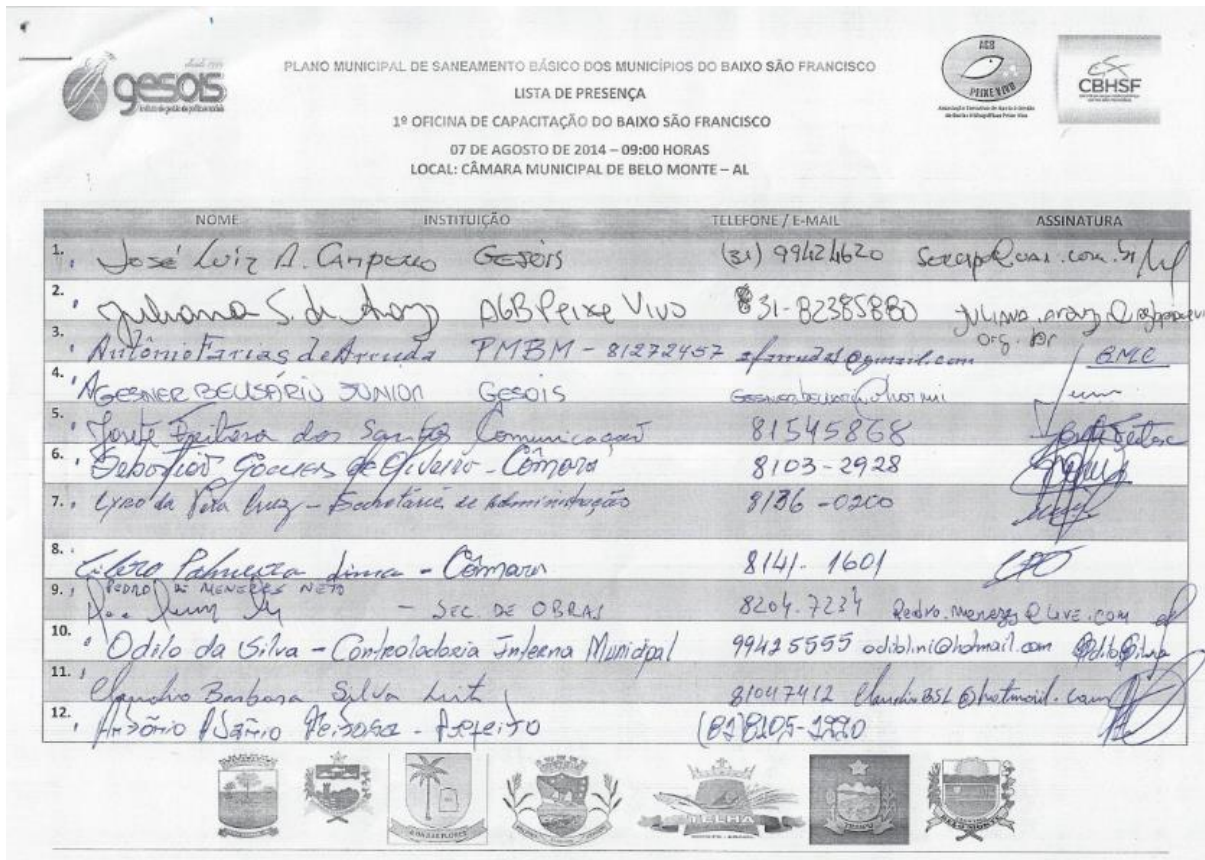 desde 1999
gesois
Instituto de gestão de políticas sociais
PLANO MUNICIPAL DE SANEAMENTO BÁSICO DOS MUNICÍPIOS DO BAIXO SÃO FRANCISCO
LISTA DE PRESENÇA
1º OFICINA DE CAPACITAÇÃO DO BAIXO SÃO FRANCISCO
07 DE AGOSTO DE 2014 – 09:00 HORAS
LOCAL: CÂMARA MUNICIPAL DE BELO MONTE – AL
AGB
PEIXE VIVO
CBHSF
NOME INSTITUIÇÃO TELEFONE / E-MAIL ASSINATURA
1. José Luiz A. Campello Gesois (31) 99424620
2. Juliana S. de Araújo AGB Peixe Vivo 31-82385880
org.br
3. Antônio Farias de Arruda PMBM - 81272457
4. AGESNER BELISÁRIO JUNIOR GESOIS
5. dos Santos Comunicação 81545868
6. Sebastião de Oliveira - Câmara 8103-2928
7. da Vera Cruz - Secretário de Administração 8136-0200
8. Palmeira Lima - Câmara 8141-1601
9. PEDRO DE MENEZES NETO
- SEC. DE OBRAS 8204.7234 Pedro.menezes@live.com
10. Odilo da Silva - Controladoria Interna Municipal 99425555 odiblini@hotmail.com
11. Claudio Barbosa Silva 81047412 ClaudioBSL@hotmail.com
12. Antônio - Prefeito
TELHA
BELO MONTE